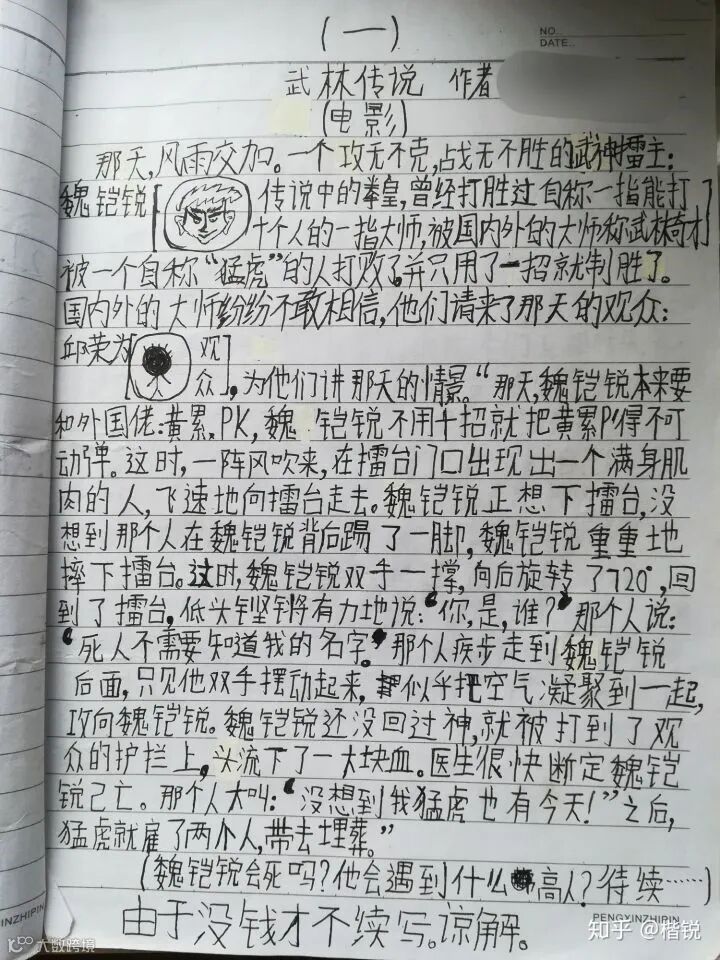 (一)
NO.
DATE.
武林传说 作者
(电影)
那天,风雨交加。一个攻无不克,战无不胜的武神擂主:
魏铠锐[传说中的拳皇,曾经打胜过自称一指能打
十个人的一指大师,被国内外的大师称武林奇才]
被一个自称“猛虎”的人打败了。并只用了一招就制胜了。
国内外的大师纷纷不敢相信,他们请来了那天的观众:
邱荣为[观
众],为他们讲那天的情景。“那天,魏铠锐本来要
和外国佬:黄累,PK,魏铠锐不用十招就把黄累P得不可
动弹。这时,一阵风吹来,在擂台门口出现出一个满身肌
肉的人,飞速地向擂台走去。魏铠锐正想下擂台,没
想到那个人在魏铠锐背后踢了一脚,魏铠锐重重地
摔下擂台。这时,魏铠锐双手一撑,向后旋转了720°,回
到了擂台,低头铿锵有力地说:“你,是,谁?”那个人说:
“死人不需要知道我的名字。”那个人疾步走到魏铠锐
后面,只见他双手摆动起来,似乎把空气凝聚到一起,
攻向魏铠锐。魏铠锐还没回过神,就被打到了观
众的护拦上,头流下了一大块血。医生很快断定魏铠
锐已亡。那个人大叫:“没想到我猛虎也有今天!”之后,
猛虎就雇了两个人,带去埋葬。”
(魏铠锐会死吗?他会遇到什么高人?待续……)
由于没钱才不续写。谅解。
INZHIPIN
PENGYINZHIPIN
大数跨境
知乎 @楷锐